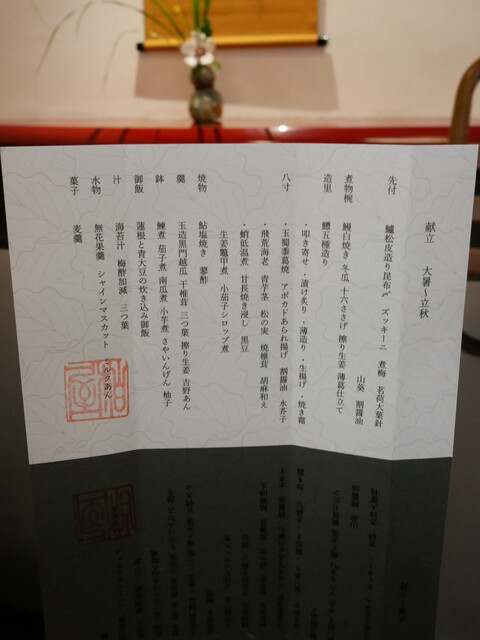 献立　大暑～立秋
先付　鱸松皮造り昆布〆　ズッキーニ　煮梅　茗荷大葉針
山葵　割醤油
煮物椀　鰻白焼き　冬瓜　十六ささげ　擦り生姜　薄葛仕立て
造里　鱧五種造り
・叩き寄せ　・漬け炙り　・薄造り　・生揚げ　・焼き霜
八寸　・玉蜀黍葛焼　アボカドあられ揚げ　割醤油　水芹子
・飛荒海老　青芋茎　松の実　焼椎茸　胡麻和え
・蛸低温煮　甘長焼き浸し　黒豆
生姜鼈甲煮　小茄子シロップ煮
焼物　鮎塩焼き　蓼酢
羹　玉造黒門越瓜　干椎茸　三つ葉　擦り生姜　吉野あん
鉢　鰊煮　茄子煮　南瓜煮　小芋煮　さやいんげん　柚子
御飯　蓮根と青大豆の炊き込み御飯
汁　海苔汁　梅酢加減　三つ葉
水物　無花果羹　シャインマスカット　ミルクあん
菓子　麦羹